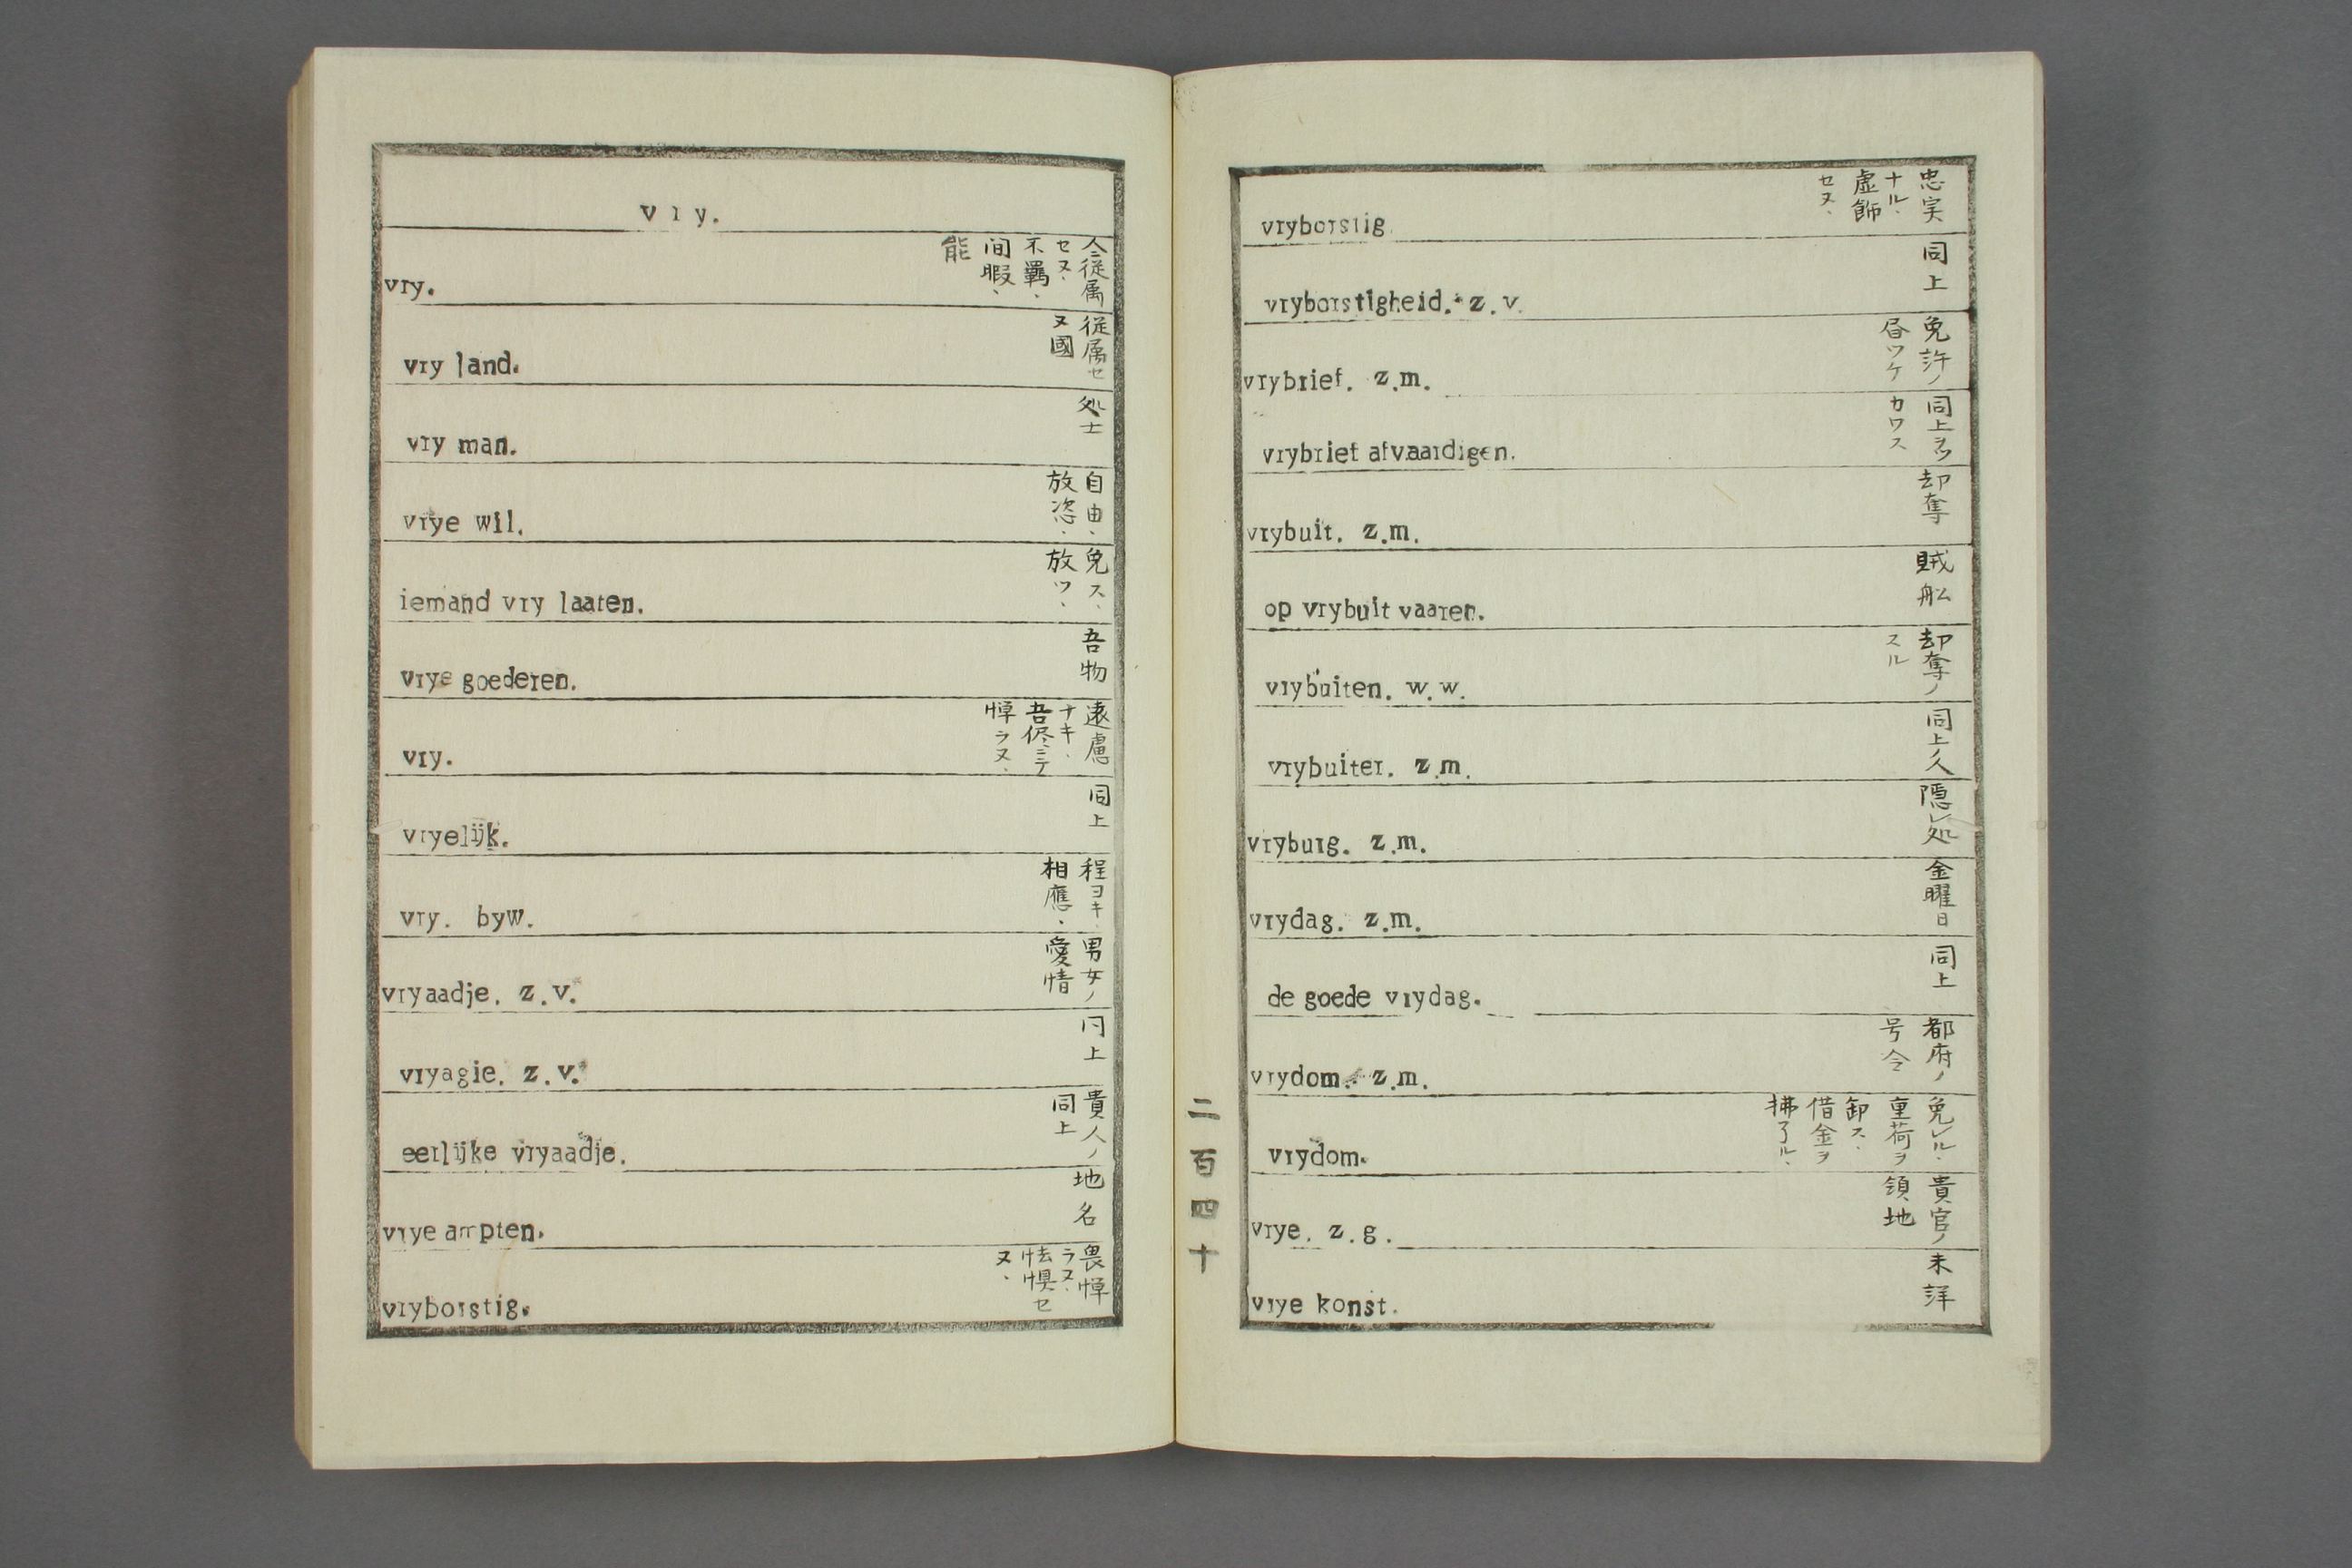 vry.
vry.
人ニ従属
セヌ、
不羈、
间暇、
能
vry land.
従属セ
ヌ國
vry man.
処士
vrye wil.
自由、
放恣、
iemand vry laaten.
免ス、
放ツ、
vrye goederen.
吾物
vry.
遠慮
ナキ、
吾侭ニテ
憚ラヌ、
vryelijk.
同上
vry. byw.
程ヨキ、
相應、
vryaadje. z.v.
男女ノ
愛情
vryagie. z.v.
同上
eerlijke vryaadje.
貴人ノ
同上
vrye ampten.
地名
vryborstig.
畏憚
ラヌ、
怯惧セ
ヌ、
vryborstig
忠実
ナル、
虚飾
セヌ、
vryborstigheid. z.v.
同上
vrybrief. z.m.
免許ノ
昏ツケ
vrybrief afvaardigen.
同上ヲツ
カワス
vrybuit. z.m.
却奪
op vrybuit vaaren.
賊舩
vrybuiten. w.w.
却奪ノ
スル
vrybuiter. z.m.
同上ノ人
vryburg. z.m.
隠レ処
vrydag. z.m.
金曜日
de goede vrydag.
同上
vrydom. z.m.
都府ノ
号令
vrydom.
免レル、
重荷ヲ
卸ス、
借金ヲ
拂了ル、
vrye. z.g.
貴官ノ
領地
vrye konst.
未詳
二百四十